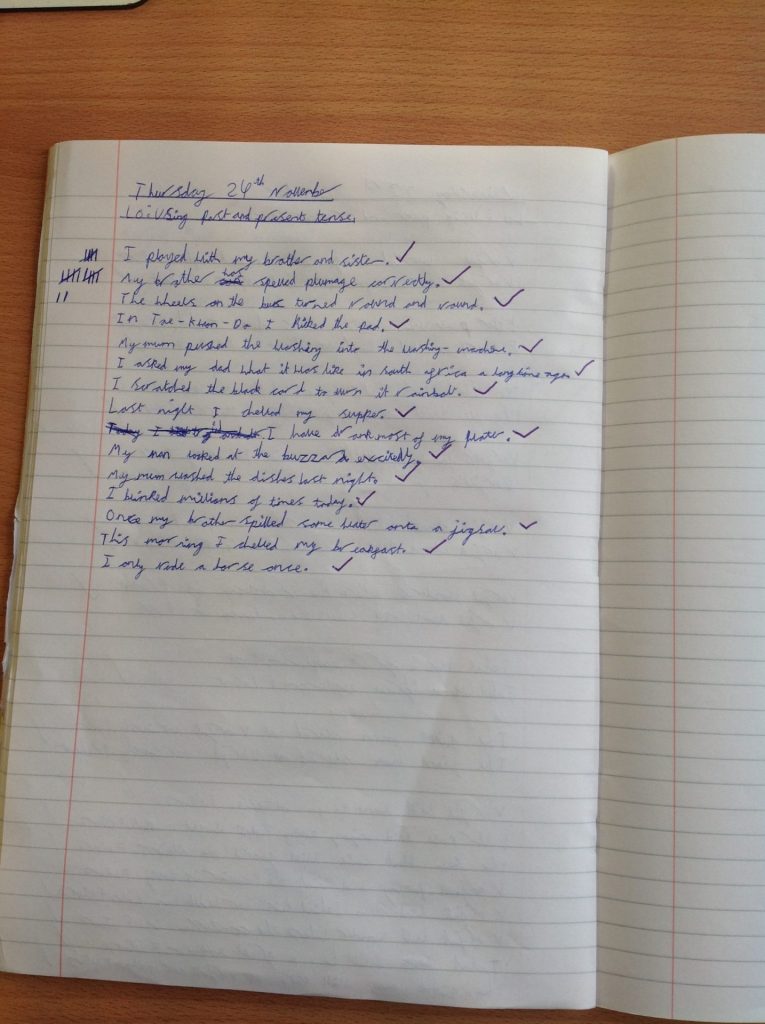 Thursday 24th November
LO: Using past and present tense.
I played with my brother and sister.
My brother has spelled plumage correctly.
The wheels on the bus turned round and round.
In Tae-Kwon-Do I kicked the pad.
My mum pushed the washing into the washing-machine.
I asked my dad what it was like in south africa a long time ago.
I scratched the black card to turn it rainbow.
Last night I chewed my supper.
I have drank most of my water.
My nan looked at the buzzard excitedly.
My mum washed the dishes last night.
I blinked millions of times today.
Once my brother spilled some water onto a jigsaw.
This morning I chewed my breakfast.
I only rode a horse once.